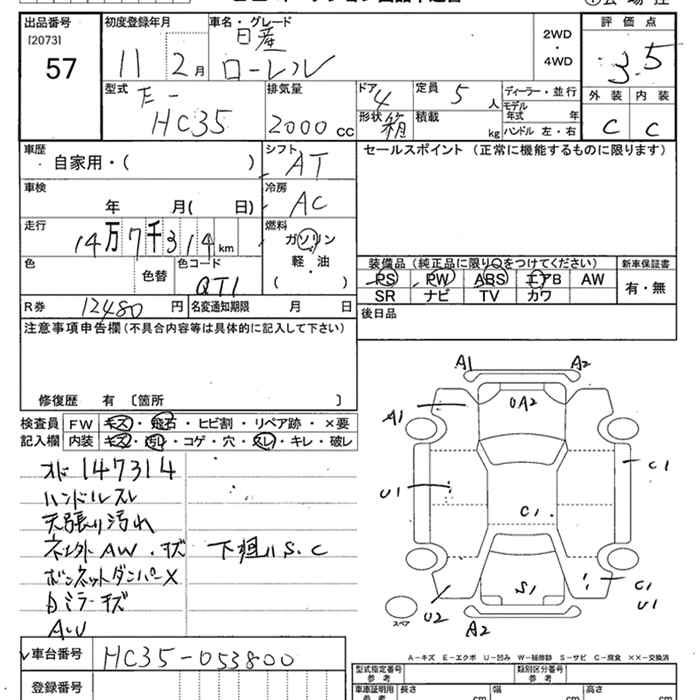 出品番号 初度登録年月 車名・グレード 評価点
[2073]
57 11 2月 日産 ローレル 2WD・4WD 3.5
型式 排気量 ドア 定員 ディーラー・並行 外装 内装
E-HC35 2000cc 4 5人 モデル年式 年 C C
形状 箱 積載 kg ハンドル 左・右
車歴 シフト セールスポイント (正常に機能するものに限ります)
自家用・( ) AT
車検 冷房
年 月( 日) AC
走行 燃料
14万7千314km ガソリン
軽・油
( )
色 色替 色コード QT1
装備品(純正品に限り○をつけてください) 新車保証書
PS PW ABS エアB AW 有・無
SR ナビ TV カワ
R券 12480円 名変通知期限 月 日
注意事項申告欄(不具合内容等は具体的に記入して下さい) 後日品
修復歴 有 〔箇所 〕
検査員 FW キズ・飛石・ヒビ割・リペア跡・×要
記入欄 内装 キズ・汚レ・コゲ・穴・スレ・キレ・破レ
オド 147314
ハンドルスレ
天張り汚れ
ネ外AW・キズ 下廻りS.C
ボンネットダンパーX
ミラーキズ
A1 A2
A1 UA2
U1 C1
C1
S1 C1
U1
U2
スペア A2
A-キズ E-エクボ U-凹み W-補修跡 S-サビ C-腐食 ××-交換済
車台番号 HC35-053800
登録番号
型式指定番号 参考 類別区分番号 参考
車庫証明用 参考 長さ cm 幅 cm 高さ cm